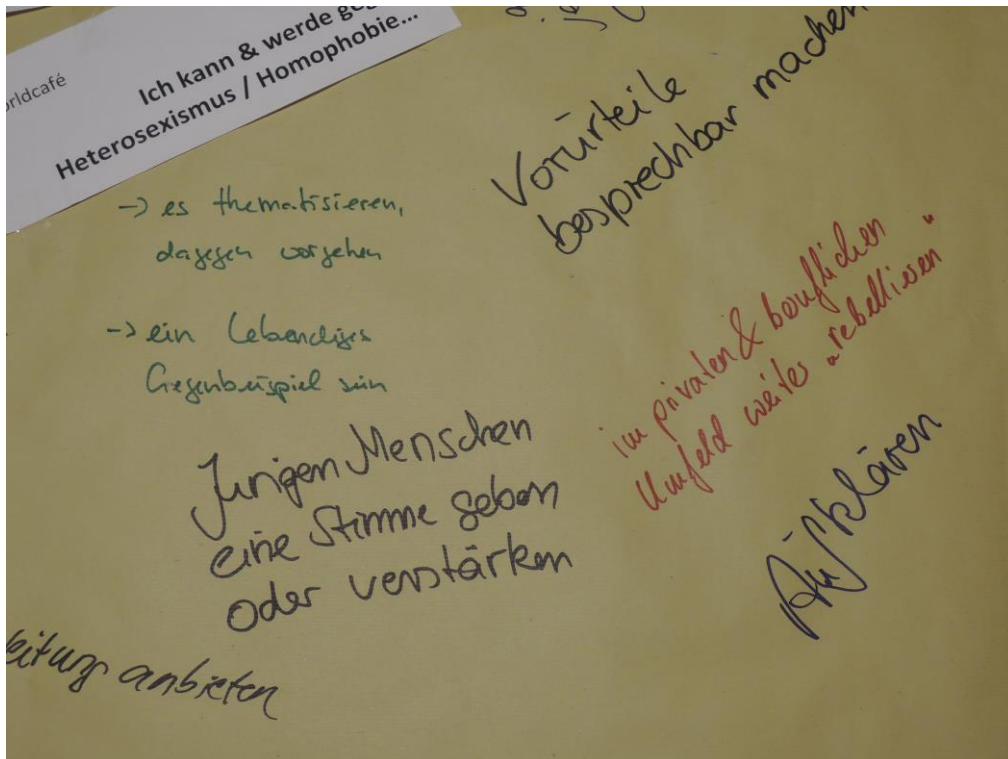 Ich kann & werde
Heterosexismus / Homophobie...
Vorurteile
besprechbar machen
-> es thematisieren,
dagegen vorgehen
-> ein lebendiges
Gegenbeispiel sein
im privaten & beruflichen
Umfeld weiter „rebellieren“
Jungen Menschen
eine Stimme geben
oder verstärken
Aufklären
anbieten